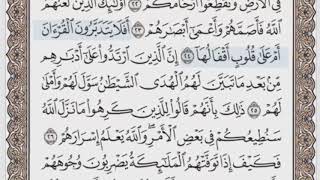 فِي ٱلْأَرْضِ وَتُقَطِّعُوٓا۟ أَرْحَامَكُمْ ٢٢ أُو۟لَٰٓئِكَ ٱلَّذِينَ لَعَنَهُمُ
ٱللَّهُ فَأَصَمَّهُمْ وَأَعْمَىٰٓ أَبْصَٰرَهُمْ ٢٣ أَفَلَا يَتَدَبَّرُونَ ٱلْقُرْءَانَ
أَمْ عَلَىٰ قُلُوبٍ أَقْفَالُهَآ ٢٤ إِنَّ ٱلَّذِينَ ٱرْتَدُّوا۟ عَلَىٰٓ أَدْبَٰرِهِم
مِّنۢ بَعْدِ مَا تَبَيَّنَ لَهُمُ ٱلْهُدَى ٱلشَّيْطَٰنُ سَوَّلَ لَهُمْ وَأَمْلَىٰ
لَهُمْ ٢٥ ذَٰلِكَ بِأَنَّهُمْ قَالُوا۟ لِلَّذِينَ كَرِهُوا۟ مَا نَزَّلَ ٱللَّهُ
سَنُطِيعُكُمْ فِي بَعْضِ ٱلْأَمْرِ وَٱللَّهُ يَعْلَمُ إِسْرَارَهُمْ ٢٦
فَكَيْفَ إِذَا تَوَفَّتْهُمُ ٱلْمَلَٰٓئِكَةُ يَضْرِبُونَ وُجُوهَهُمْ